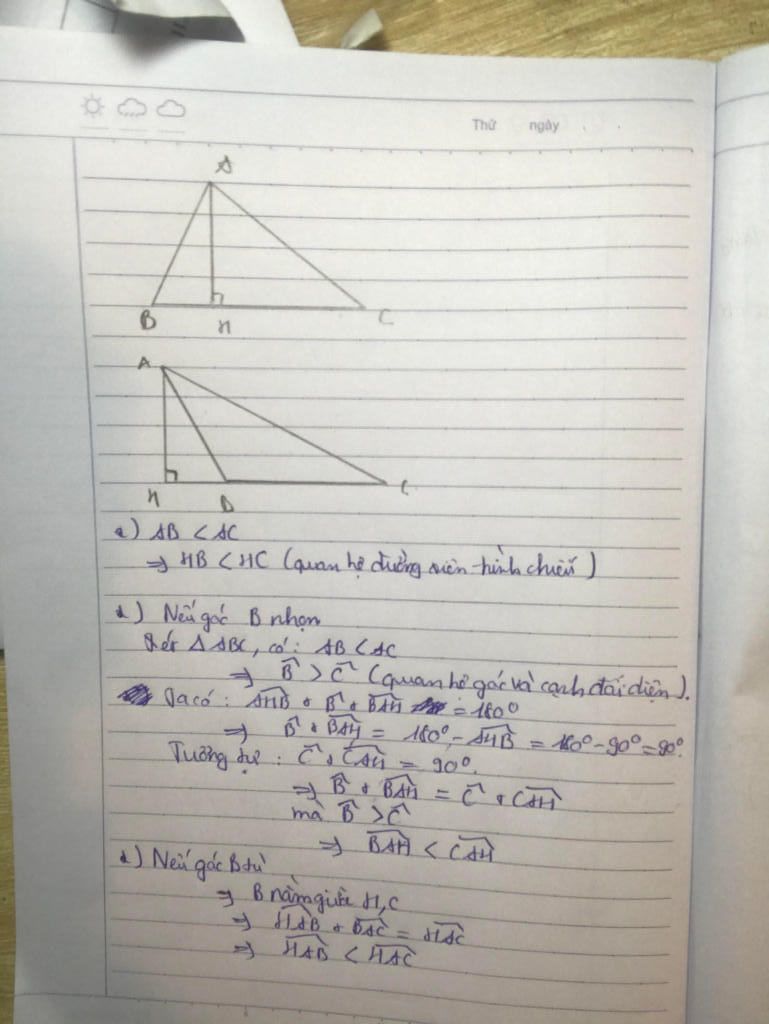 Thứ ngày
A
B H C
A
H B C
a) AB < AC
⇒ HB < HC (quan hệ đường xiên-hình chiếu)
b) Nếu góc B nhọn
Xét Δ ABC, có: AB < AC
⇒ B̂ > Ĉ (quan hệ góc và cạnh đối diện).
Ta có: \widehat{AHB} + B̂ + \widehat{BAH} = 180°
⇒ B̂ + \widehat{BAH} = 180° - \widehat{AHB} = 180° - 90° = 90°.
Tương tự: Ĉ + \widehat{CAH} = 90°.
⇒ B̂ + \widehat{BAH} = Ĉ + \widehat{CAH}
mà B̂ > Ĉ
⇒ \widehat{BAH} < \widehat{CAH}
) Nếu góc B tù
⇒ B nằm giữa H, C
⇒ \widehat{HAB} + \widehat{BAC} = \widehat{HAC}
⇒ \widehat{HAB} < \widehat{HAC}